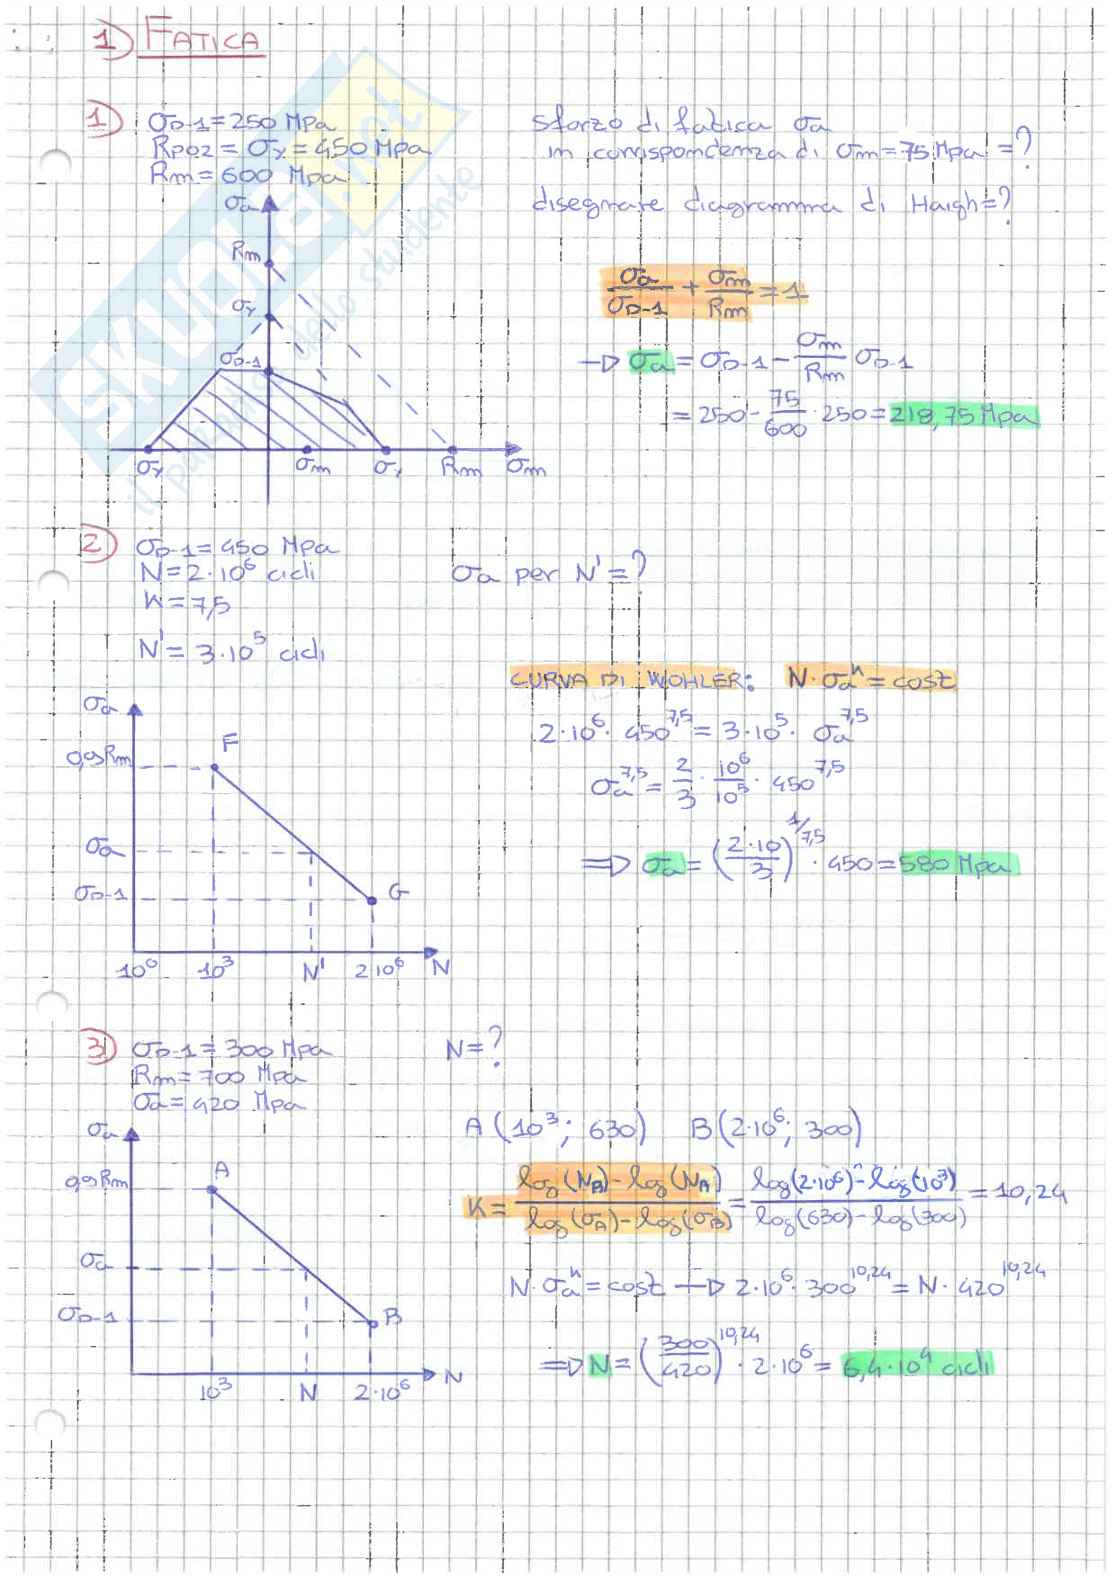 1) FATICA
1) σD-1=250 MPa
Rp02 = σy = 450 MPa
Rm = 600 MPa
sforzo di fatica σa
in corrispondenza di σm=75 MPa =?
disegnare diagramma di Haigh=?
σa
Rm
σy
σD-1
σy σm σy Rm σm
σa/σD-1 + σm/Rm = 1
→ σa = σD-1 - σm/Rm σD-1
= 250 - 75/600 · 250 = 218,75 MPa
SKUOLA.net
il portale dello studente
2) σD-1=450 MPa
N=2·10⁶ cicli
K=7,5
N'= 3·10⁵ cicli
σa per N'=?
CURVA DI WOHLER: N·σa^K = cost
2·10⁶· 450^7,5 = 3·10⁵· σa^7,5
σa^7,5 = 2/3 · 10⁶/10⁵ · 450^7,5
⇒ σa = (2·10/3)^1/7,5 · 450 = 580 MPa
σa
0,9Rm F
σa
σD-1 G
10⁰ 10³ N' 2·10⁶ N
3) σD-1 = 300 MPa
Rm=700 MPa
σa=420 MPa
N=?
A (10³; 630) B(2·10⁶; 300)
K = log(NB)-log(NA)/log(σA)-log(σB) = log(2·10⁶)-log(10³)/log(630)-log(300) = 10,24
N·σa^K = cost → 2·10⁶· 300^10,24 = N· 420^10,24
⇒ N = (300/420)^10,24 · 2·10⁶ = 6,4·10⁴ cicli
σa
0,9Rm A
σa
σD-1 B
10³ N 2·10⁶ N